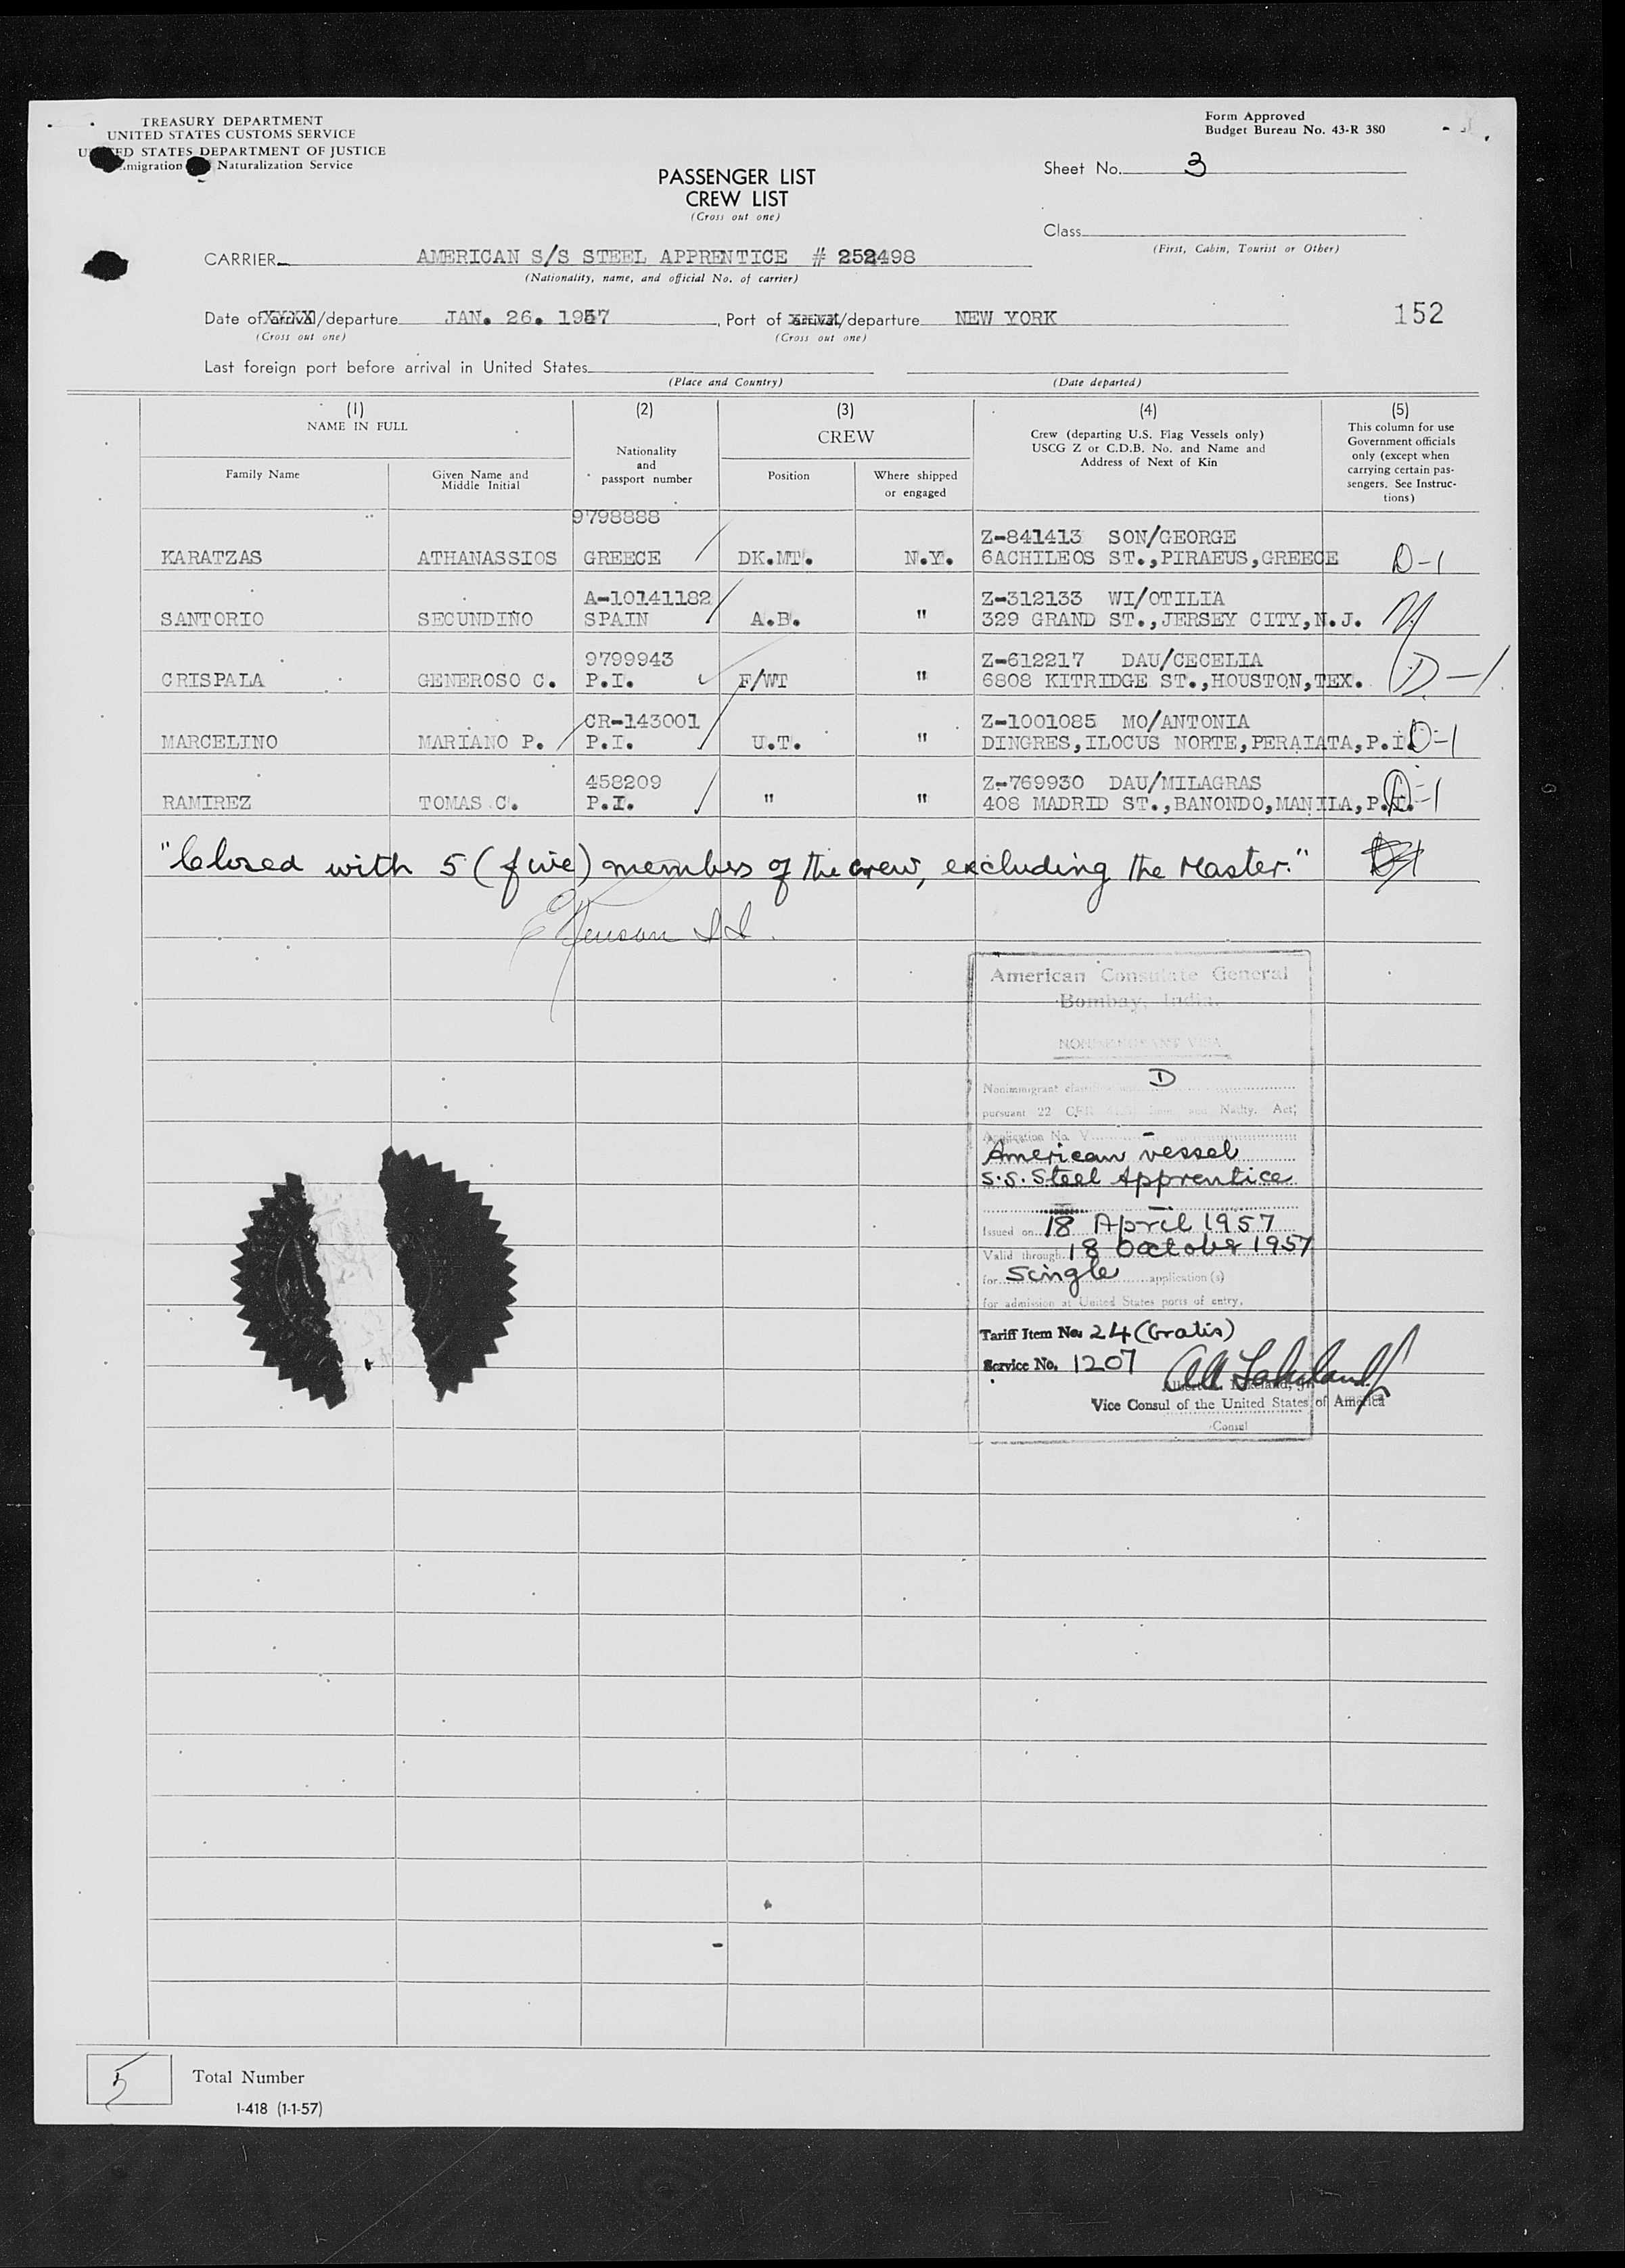 TREASURY DEPARTMENT
UNITED STATES CUSTOMS SERVICE
STATES DEPARTMENT OF JUSTICE
Naturalization Service
Form Approved
Budget Bureau No. 43-R 380
PASSENGER LIST
CREW LIST
(Cross out one)
Sheet No. 3
Class
(First, Cabin, Tourist or Other)
CARRIER AMERICAN S/S STEEL APPRENTICE # 252498
(Nationality, name, and official No. of carrier)
Date of arrival/departure JAN. 26. 1957, Port of arrival/departure NEW YORK
(Cross out one) (Cross out one)
152
Last foreign port before arrival in United States
(Place and Country) (Date departed)
(1) (2) (3) (4) (5)
NAME IN FULL
Family Name
Given Name and Middle Initial
Nationality and passport number
CREW
Position
Where shipped or engaged
Crew (departing U.S. Flag Vessels only)
USCG Z or C.D.B. No. and Name and
Address of Next of Kin
This column for use
Government officials
only (except when
carrying certain pas-
sengers. See Instruc-
tions)
9798888 Z-841413 SON/GEORGE
KARATZAS ATHANASSIOS GREECE DK.MT. N.Y. 6ACHILEOS ST.,PIRAEUS,GREECE D-1
A-10141182 Z-312133 WI/OTILIA
SANTORIO SECUNDINO SPAIN A.B. " 329 GRAND ST.,JERSEY CITY,N.J.
9799943 Z-612217 DAU/CECELIA
CRISPALA GENEROSO C. P.I. F/WT " 6808 KITRIDGE ST.,HOUSTON,TEX. D-1
CR-143001 Z-1001085 MO/ANTONIA
MARCELINO MARIANO P. P.I. U.T. " DINGRES,ILOCUS NORTE,PERAIATA,P.I. D-1
458209 Z-769930 DAU/MILAGRAS
RAMIREZ TOMAS C. P.I. " " 408 MADRID ST.,BANONDO,MANILA,P.I. D-1
"Closed with 5 (five) members of the crew, excluding the Master."
American Consulate General
Bombay, India.
NONIMMIGRANT VISA
Nonimmigrant D
pursuant 22 CFR Natlty. Act;
Application No. V
American vessel
S.S. Steel Apprentice
Issued on 18 April 1957
Valid through 18 October 1957
for Single application(s)
for admission at United States ports of entry.
Tariff Item No. 24 (Gratis)
Service No. 1207
Vice Consul of the United States of America
Consul
5 Total Number
I-418 (1-1-57)